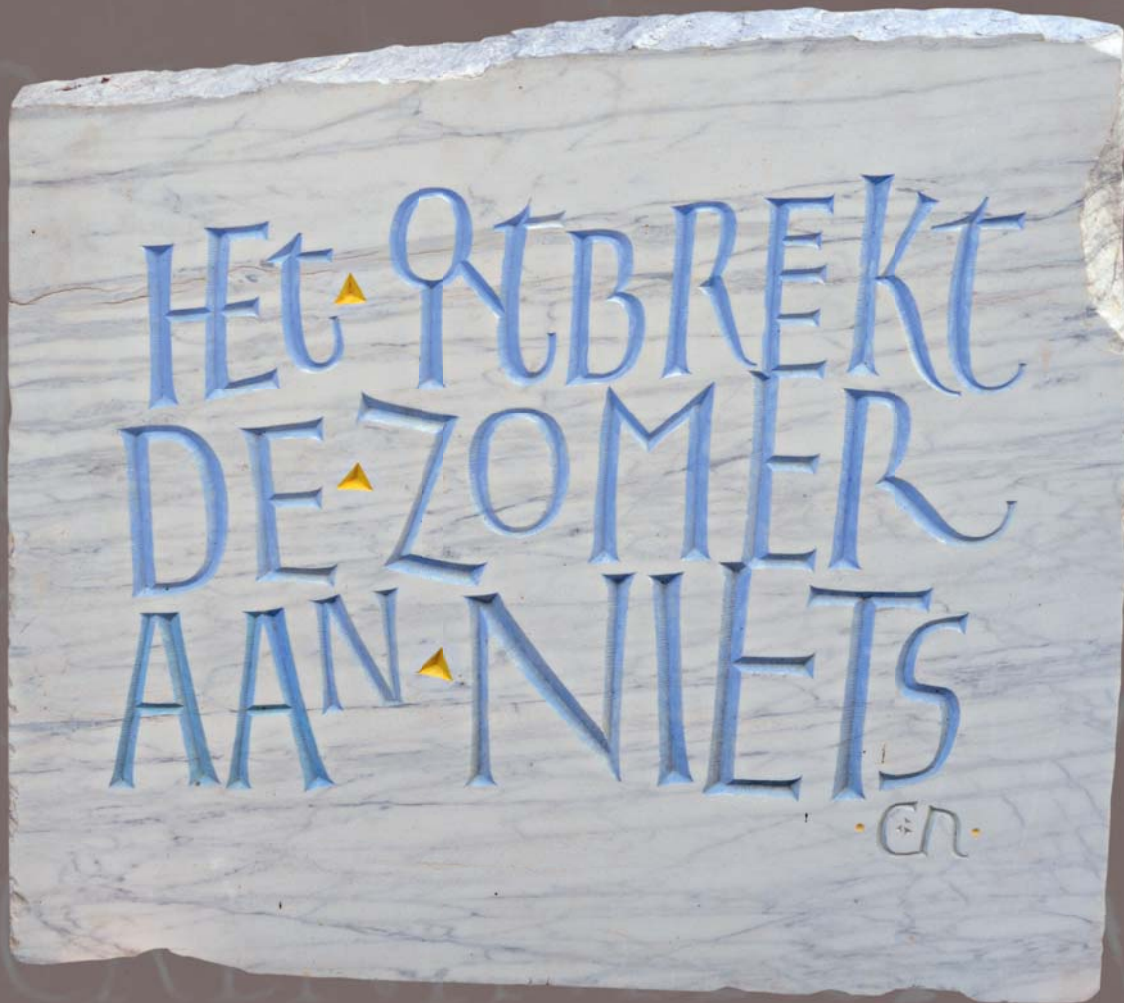 HEt ▲ ONtBREKt
DE ▲ ZOMER
AAN ▲ NIETS
· en ·